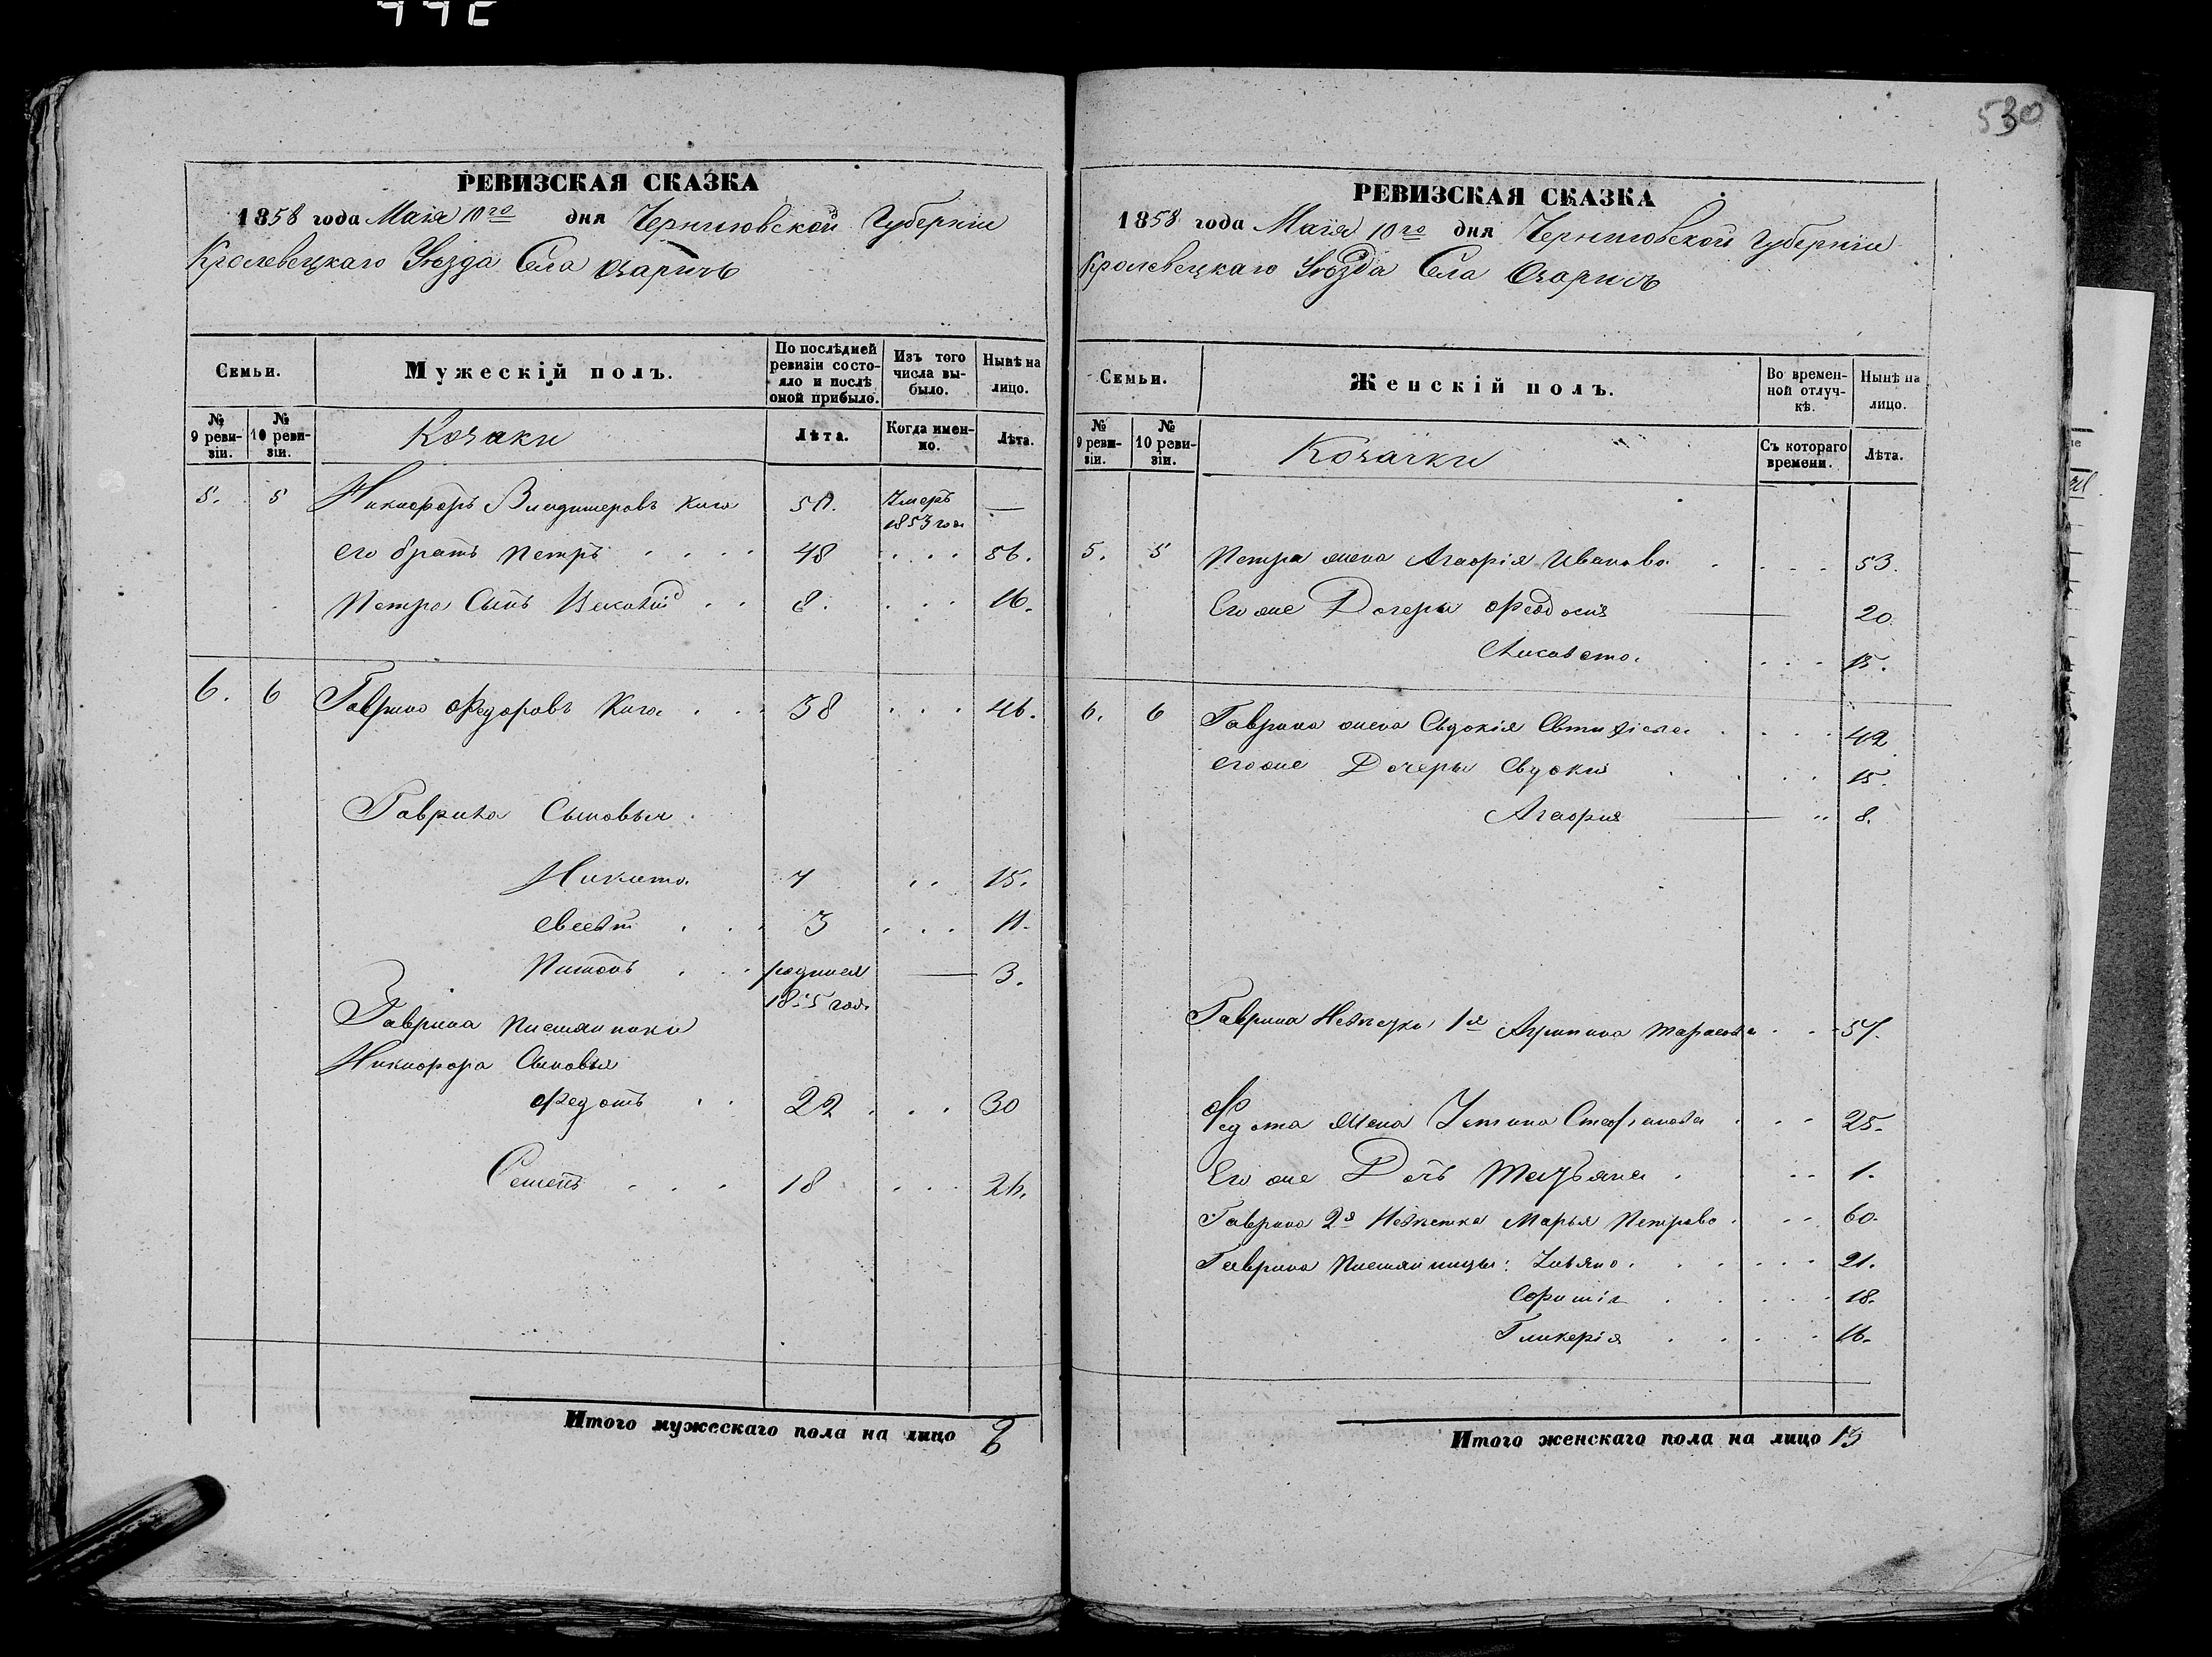 530
РЕВИЗСКАЯ СКАЗКА
1858 года Маія 10го дня Черниговской Губерніи
Кролевецкаго Уѣзда Села Озаричъ
Семьи.
Мужескій полъ.
По послѣдней ревизіи состояло и послѣ оной прибыло.
Изъ того числа выбыло.
Нынѣ на лицо.
№ 9 ревизіи.
№ 10 ревизіи.
Козаки
Лѣта.
Когда именно.
Лѣта.
5. 5 Никифоръ Владимеровъ Кига 50. Умеръ —
1853 года
его братъ Петръ . . . . 48 . . . 56.
Петра Сынъ . . 8. . . . 16.
6. 6 Гаврило Федоровъ Кига . . . 38 . . . 46.
Гаврила Сыновья
Никита 7 . . 15.
Евсей . . . 3 . . . 11.
. . . родился — 3.
1855 года
Гаврила племянники
Никифора Сыновья
Федотъ . . 22 . . . 30
Семенъ . . . 18 . . . 26.
Итого мужескаго пола на лицо 8
РЕВИЗСКАЯ СКАЗКА
1858 года Маія 10го дня Черниговской Губерніи
Кролевецкаго Уѣзда Села Озаричъ
Семьи.
Женскій полъ.
Во временной отлучкѣ.
Нынѣ на лицо.
№ 9 ревизіи.
№ 10 ревизіи.
Козачки
Съ котораго времени.
Лѣта.
5. 5 Петра жена Агафія Иванова . . . . 53.
Его же Дочери Феодосія — 20.
Лисавета . . . . 15.
6. 6 Гаврила жена Евдокія . . . . 42
его же Дочери Евдокия . . . . 15.
Агафия — „ 8.
Гаврила Невѣстка 1я Агрипина Тарасова . . 57.
Федота жена Устина Стефанова . . . 25.
Его же Дочь Татьяна . . . 1.
Гаврила 2я Невѣстка Марья Петрова . . . 60.
Гаврила Племянницы: Ульяна . . . . . . 21.
. . . . . . 18.
Гликерія . . . . . 16.
Итого женскаго пола на лицо 13